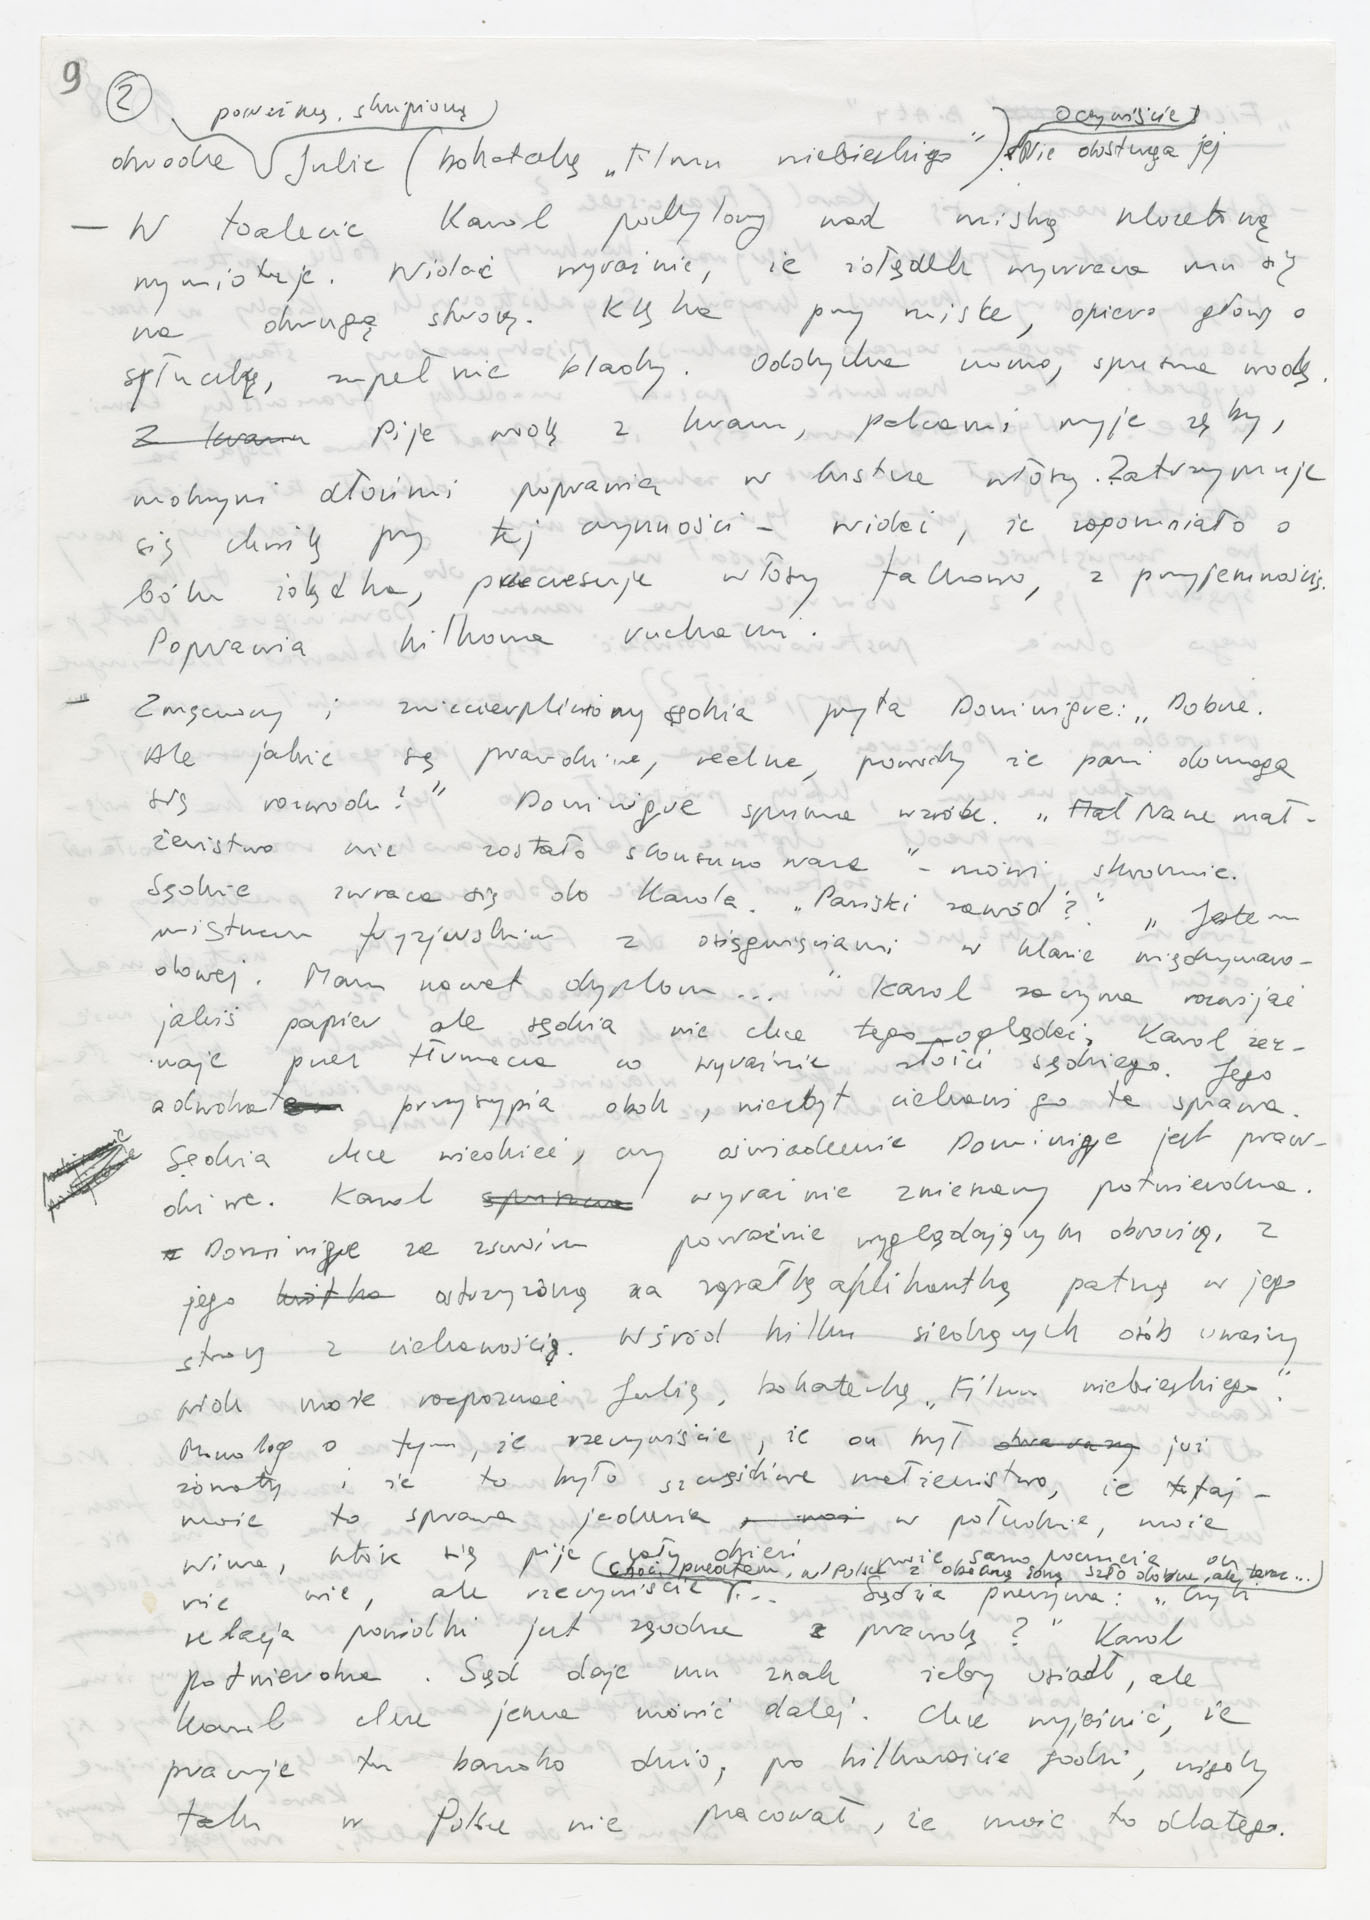 9
2
poważną, skupioną
Oczywiście
Julie (bohaterkę „Filmu niebieskiego") Nie dostrzega jej
— W toalecie Karol pochylony nad miską klozetową
wymiotuje. Widać wyraźnie, że żołądek wywraca mu się
na drugą stronę. Klęka przy misce, opiera głowę o
spłuczkę, zupełnie blady. Oddycha, spuszcza wodę.
Z kranu Pije wodę z kranu, palcami myje zęby,
mokrymi dłońmi poprawia w lustrze włosy. Zatrzymuje
się chwilę przy tej czynności – widać, że zapomniało o
bólu żołądka, przeczesuje włosy fachowo, z przyjemnością.
Poprawia kilkoma ruchami.
- Zmęczony i zniecierpliwiony sędzia pyta Dominique: „Dobrze.
Ale jakie są prawdziwe, realne, powody że pani domaga
się rozwodu?" Dominique spuszcza wzrok. „Nasze mał-
żeństwo nie zostało skonsumowane" – mówi skromnie.
Sędzia zwraca się do Karola. „Pański zawód?" „Jestem
mistrzem fryzjerskim z osiągnięciami w klasie międzynaro-
dowej. Mam nawet dyplom..." Karol zaczyna rozwijać
jakiś papier ale sędzia nie chce tego oglądać. Karol zez-
naje przez tłumacza co wyraźnie złości sędziego. Jego
adwokat przysypia obok, niezbyt ciekawi go ta sprawa.
Sędzia chce wiedzieć, czy oświadczenie Dominique jest praw-
dziwe. Karol spuszcza wyraźnie zmieszany potwierdza.
Dominique ze swoim poważnie wyglądającym obrońcą, z
jego krótko ostrzyżoną na zapałkę aplikantką patrzą w jego
stronę z ciekawością. Wśród kilku siedzących osób uważny
widz może rozpoznać Julię, bohaterkę „Filmu niebieskiego".
Monolog o tym, że rzeczywiście, że on był dwa razy już
żonaty i że to było szczęśliwe małżeństwo, że tutaj -
może to sprawa jedzenia w południe, może
wina, które się pije cały dzień może samo poczucia on
(choć przedtem, w Polsce z obecną żoną szło dobrze, ale, teraz...)
nie wie, ale rzeczywiście... Sędzia przerywa: „Czyli
relacja powódki jest zgodna z prawdą?" Karol
potwierdza. Sąd daje mu znak żeby usiadł, ale
Karol chce jeszcze mówić dalej. Chce wyjaśnić, że
pracuje tu bardzo dużo, po kilkanaście godzin, nigdy
tak w Polsce nie pracował, że może to dlatego.